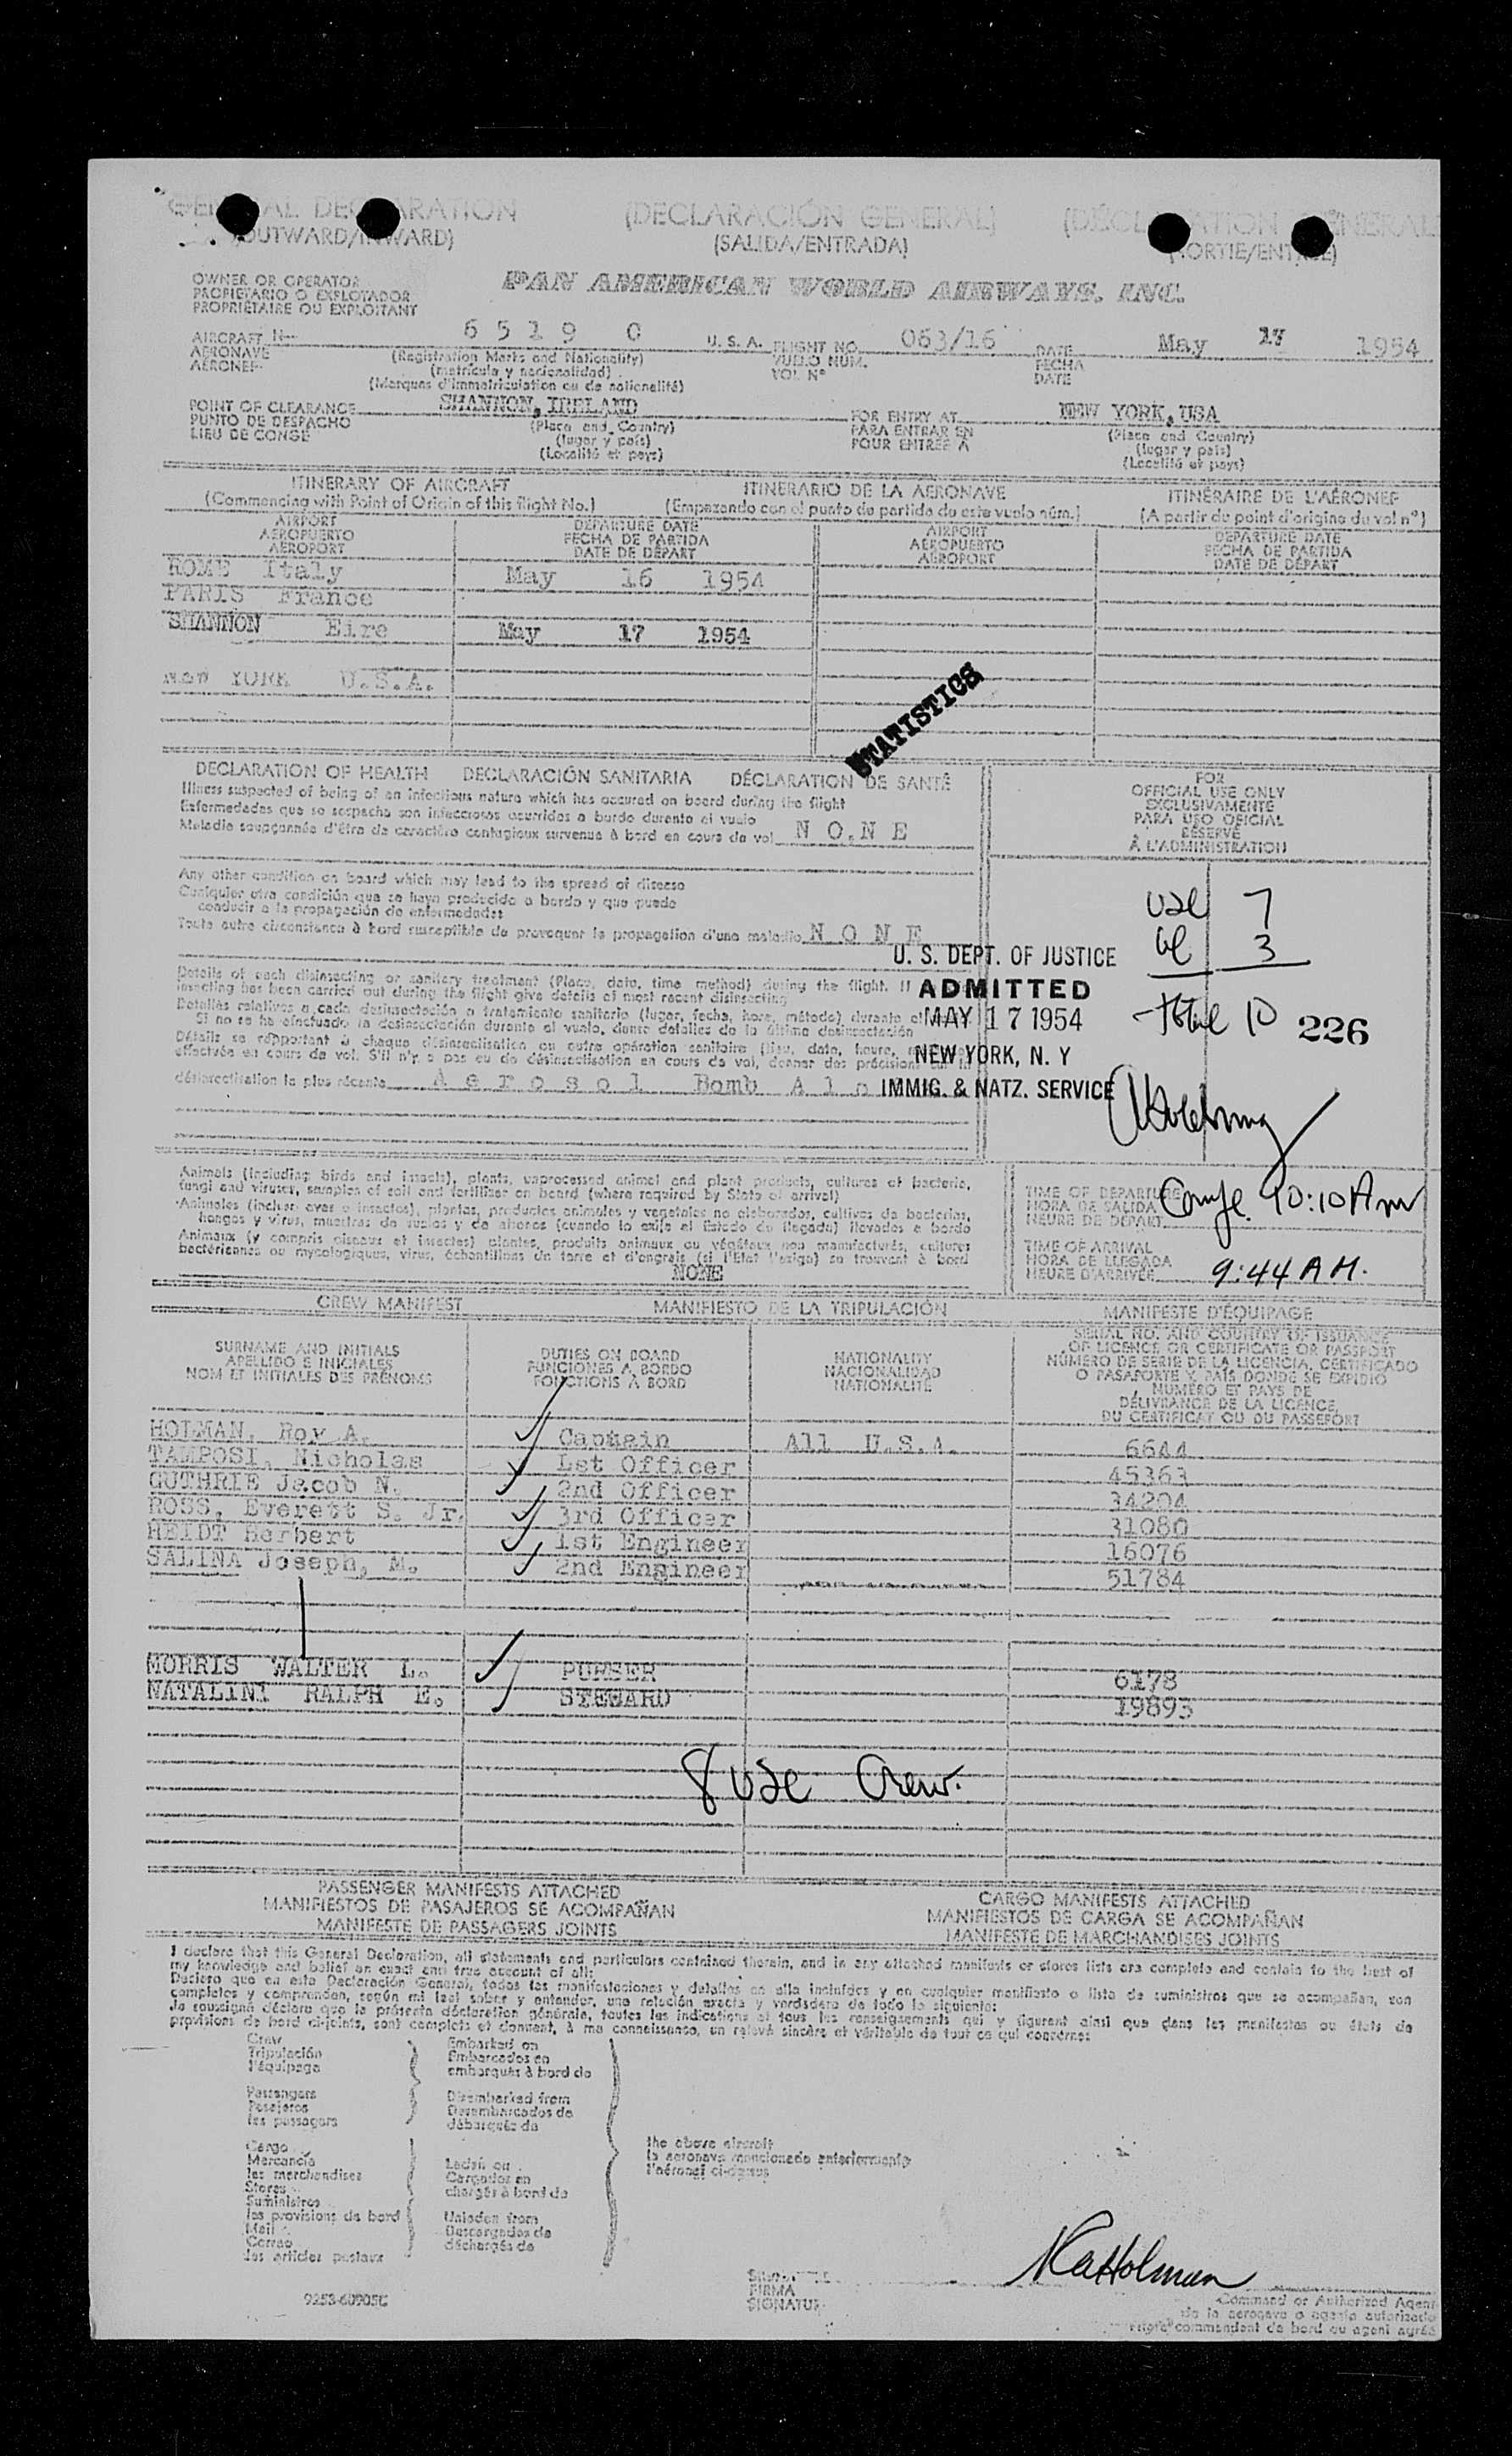 GENERAL DECLARATION (DECLARACIÓN GENERAL) (DÉCLARATION GÉNÉRALE
(OUTWARD/INWARD) (SALIDA/ENTRADA) (SORTIE/ENTRÉE)
OWNER OR OPERATOR
PROPIETARIO O EXPLOTADOR
PROPRIÉTAIRE OU EXPLOITANT
PAN AMERICAN WORLD AIRWAYS, INC.
AIRCRAFT N- 6 5 1 9 C U. S. A. FLIGHT NO. 063/16 DATE May 17 1954
AERONAVE (Registration Marks and Nationality) VUELO NUM. FECHA
AÉRONEF (matrícula y nacionalidad) VOL Nº DATE
(Marques d'immatriculation ou de nationalité)
POINT OF CLEARANCE SHANNON, IRELAND FOR ENTRY AT NEW YORK, USA
PUNTO DE DESPACHO (Place and Country) PARA ENTRAR EN (Place and Country)
LIEU DE CONGÉ (lugar y país) POUR ENTRÉE À (lugar y país)
(Localité et pays) (Localité et pays)
ITINERARY OF AIRCRAFT ITINERARIO DE LA AERONAVE ITINÉRAIRE DE L'AÉRONEF
(Commencing with Point of Origin of this flight No.) (Empezando con el punto de partida de este vuelo núm.) (A partir du point d'origine du vol nº)
AIRPORT DEPARTURE DATE AIRPORT DEPARTURE DATE
AEROPUERTO FECHA DE PARTIDA AEROPUERTO FECHA DE PARTIDA
AÉROPORT DATE DE DÉPART AÉROPORT DATE DE DÉPART
ROME Italy May 16 1954
PARIS France
SHANNON Eire May 17 1954
NEW YORK U.S.A.
STATISTICS
DECLARATION OF HEALTH DECLARACIÓN SANITARIA DÉCLARATION DE SANTÉ
Illness suspected of being of an infectious nature which has occured on board during the flight
Enfermedades que se sospecha son infecciosas ocurridas a bordo durante el vuelo
Maladie soupçonnée d'être de caractère contagieux survenue à bord en cours de vol N O N E
FOR
OFFICIAL USE ONLY
EXCLUSIVAMENTE
PARA USO OFICIAL
RÉSERVÉ
À L'ADMINISTRATION
Any other condition on board which may lead to the spread of disease
Cualquier otra condición que se haya producido a bordo y que puede
conducir a la propagación de enfermedades
Toute autre circonstance à bord susceptible de provoquer la propagation d'une maladie N O N E
7
3
10 226
U. S. DEPT. OF JUSTICE
ADMITTED
MAY 17 1954
NEW YORK, N. Y
IMMIG. & NATZ. SERVICE
Details of each disinsecting or sanitary treatment (Place, date, time, method) during the flight. If
insecting has been carried out during the flight give details of most recent disinsecting
Detalles relativos a cada desinsectación o tratamiento sanitario (lugar, fecha, hora, método) durante el
Si no se ha efectuado la desinsectación durante el vuelo, dense detalles de la última desinsectación
Détails se rapportant à chaque désinsectisation ou autre opération sanitaire (lieu, date, heure,
effectuée en cours de vol. S'il n'y a pas eu de désinsectisation en cours de vol, donner des précisions sur la
désinsectisation la plus récente A e r o s o l Bomb
Animals (including birds and insects), plants, unprocessed animal and plant products, cultures of bacteria,
fungi and viruses, samples of soil and fertilizer on board (where required by State of arrival)
Animales (incluso aves e insectos), plantas, productos animales y vegetales no elaborados, cultivos de bacterias,
hongos y virus, muestras de suelos y de abonos (cuando lo exija el Estado de llegada) llevados a bordo
Animaux (y compris oiseaux et insectes) plantes, produits animaux ou végétaux non manufacturés, cultures
bactériennes ou mycologiques, virus, échantillons de terre et d'engrais (si l'Etat l'exige) se trouvant à bord
NONE
TIME OF DEPARTURE
HORA DE SALIDA 10:10 Am
HEURE DE DÉPART
TIME OF ARRIVAL
HORA DE LLEGADA
HEURE D'ARRIVÉE 9:44 A M.
CREW MANIFEST MANIFIESTO DE LA TRIPULACIÓN MANIFESTE D'ÉQUIPAGE
SURNAME AND INITIALS DUTIES ON BOARD NATIONALITY SERIAL NO. AND COUNTRY OF ISSUANCE
APELLIDO E INICIALES FUNCIONES A BORDO NACIONALIDAD OF LICENCE OR CERTIFICATE OR PASSPORT
NOM ET INITIALES DES PRÉNOMS FONCTIONS À BORD NATIONALITÉ NÚMERO DE SERIE DE LA LICENCIA, CERTIFICADO
O PASAPORTE Y PAÍS DONDE SE EXPIDIÓ
NUMÉRO ET PAYS DE
DÉLIVRANCE DE LA LICENCE,
DU CERTIFICAT OU DU PASSEPORT
HOLMAN, Roy A. Captain All U.S.A. 6644
TAMPOSI, Nicholas 1st Officer 45363
GUTHRIE Jacob N. 2nd Officer 34204
ROSS, Everett S. Jr. 3rd Officer 31080
HEIDT Herbert 1st Engineer 16076
SALINA Joseph, M. 2nd Engineer 51784
MORRIS WALTER L. PURSER 6178
NATALINI RALPH E. STEWARD 19893
8 USC Crew.
PASSENGER MANIFESTS ATTACHED CARGO MANIFESTS ATTACHED
MANIFIESTOS DE PASAJEROS SE ACOMPAÑAN MANIFIESTOS DE CARGA SE ACOMPAÑAN
MANIFESTE DE PASSAGERS JOINTS MANIFESTE DE MARCHANDISES JOINTS
I declare that this General Declaration, all statements and particulars contained therein, and in any attached manifests or stores lists are complete and contain to the best of
my knowledge and belief an exact and true account of all:
Declaro que en esta Declaración General, todas las manifestaciones y detalles en ella incluídos y en cualquier manifiesto o lista de suministros que se acompañan, son
completos y comprenden, según mi leal saber y entender, una relación exacta y verdadera de todo lo siguiente:
Je soussigné déclare que la présente déclaration générale, toutes les indications et tous les renseignements qui y figurent ainsi que dans les manifestes ou états de
provisions de bord ci-joints, sont complets et donnent, à ma connaissance, un relevé sincère et véritable de tout ce qui concerne:
Crew Embarked on
Tripulación Embarcados en
l'équipage embarqués à bord de
Passengers Disembarked from
Pasajeros Desembarcados de
les passagers débarqués de
Cargo the above aircraft
Mercancía Laden on la aeronave mencionada anteriormente
les merchandises Cargados en l'aéronef ci-dessus
Stores chargés à bord de
Suministros
les provisions de bord Unladen from
Mail Descargados de
Correo déchargés de
les articles postaux
9253-60905C
FIRMA
SIGNATURE
RAHolman
Command or Authorized Agent
de la aeronave o agente autorizado
commandant de bord ou agent agréé